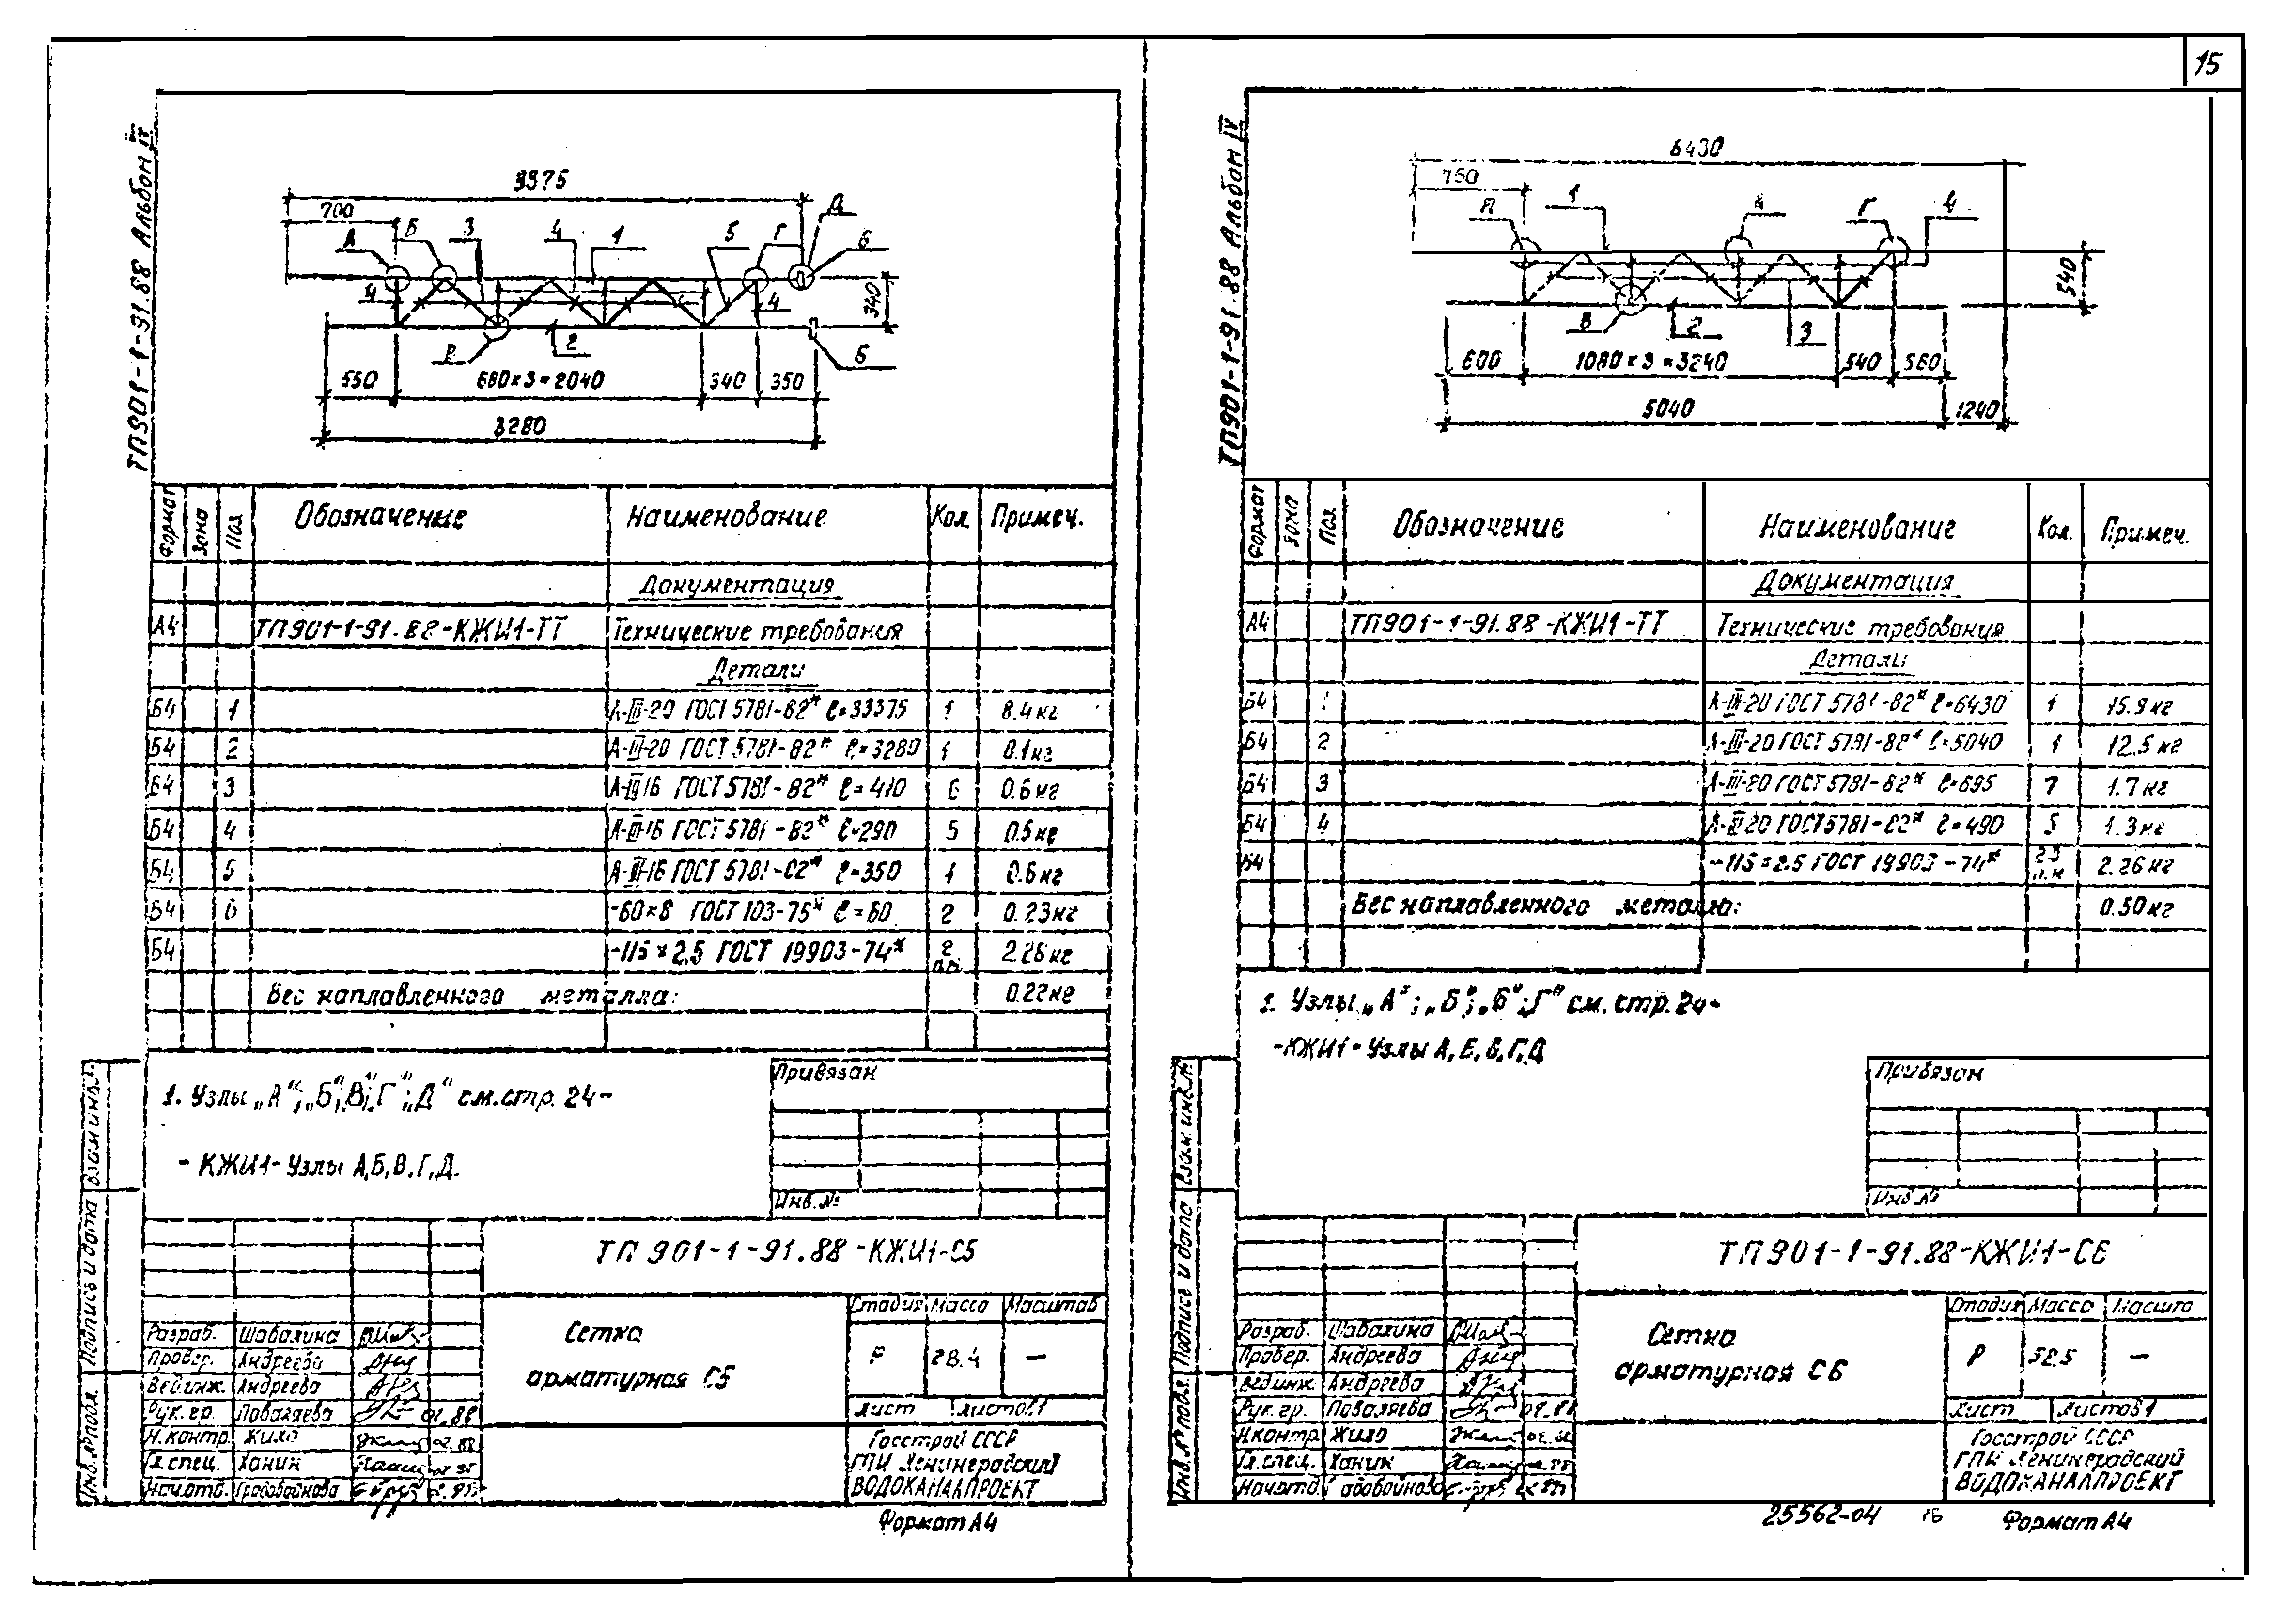 15
ТП901-1-91.88 Альбом IV
3375
700
А Б 3 4 1 5 Г Д 6
4 4
340
В 2 6
550 680×3=2040 340 350
3280
Формат Зона Поз Обозначение Наименование Кол Примеч.
Документация
А4 ТП901-1-91.88-КЖИ1-ТТ Технические требования
Детали
Б4 1 А-III-20 ГОСТ 5781-82* ℓ=33375 1 8.4кг
Б4 2 А-III-20 ГОСТ 5781-82* ℓ=3280 1 8.1кг
Б4 3 А-III 16 ГОСТ 5781-82* ℓ=410 6 0.6кг
Б4 4 А-III-16 ГОСТ 5781-82* ℓ=290 5 0.5кг
Б4 5 А-III-16 ГОСТ 5781-82* ℓ=350 1 0.6кг
Б4 6 -60×8 ГОСТ 103-75* ℓ=60 2 0.23кг
Б4 -115×2,5 ГОСТ 19903-74* 2 п.м. 2.26кг
Вес наплавленного металла: 0.22кг
1. Узлы „А“; „Б“; „В“; „Г“; „Д“ см.стр. 24-
- КЖИ1-Узлы А,Б,В,Г,Д.
Привязан
Инв.№
Взам инв.№
Подпись и дата
Инв.№ подл.
ТП 901-1-91.88-КЖИ1-С5
Сетка
арматурная С5
Стадия Масса Масштаб
Р 28.4 —
Лист Листов 1
Разраб. Шабалина
Провер. Андреева
Вед.инж. Андреева
Рук.гр. Поваляева 02.88
Н.контр Жило 02.88
Гл.спец. Ханин
Нач.отд.
Госстрой СССР
ГПИ Ленинградский
ВОДОКАНАЛПРОЕКТ
Формат А4
ТП901-1-91.88 Альбом IV
6430
750
1 Г 4
540
В 2 3
600 1080×3=3240 540 560
5040 1240
Формат Зона Поз Обозначение Наименование Кол. Примеч.
Документация
А4 ТП901-1-91.88-КЖИ1-ТТ Технические требования
Детали
Б4 1 А-III-20 ГОСТ 5781-82* ℓ=6430 1 15.9кг
Б4 2 А-III-20 ГОСТ 5781-82* ℓ=5040 1 12.5кг
Б4 3 А-III-20 ГОСТ 5781-82* ℓ=695 7 1.7кг
Б4 4 А-III 20 ГОСТ 5781-82* ℓ=490 5 1.3кг
Б4 -115×2.5 ГОСТ 19903-74* 2.26кг
Вес наплавленного металла: 0.50кг
1. Узлы „А“; „Б“; „Б“; „Г“ см. стр. 24-
-КЖИ1-Узлы А,Б,В,Г,Д
Привязан
Инв №
Взам.инв.№
Подпись и дата
Инв.№ подл.
ТП901-1-91.88-КЖИ1-С6
Сетка
арматурная С6
Стадия Масса Масшта
Р 52.5 —
Лист Листов 1
Разраб. Шабалина
Провер. Андреева
Вед.инж. Андреева
Рук.гр. Поваляева
Н.контр Жило
Гл.спец. Ханин
Нач.отд
Госстрой СССР
ГПИ Ленинградский
ВОДОКАНАЛПРОЕКТ
25562-04 16 Формат А4